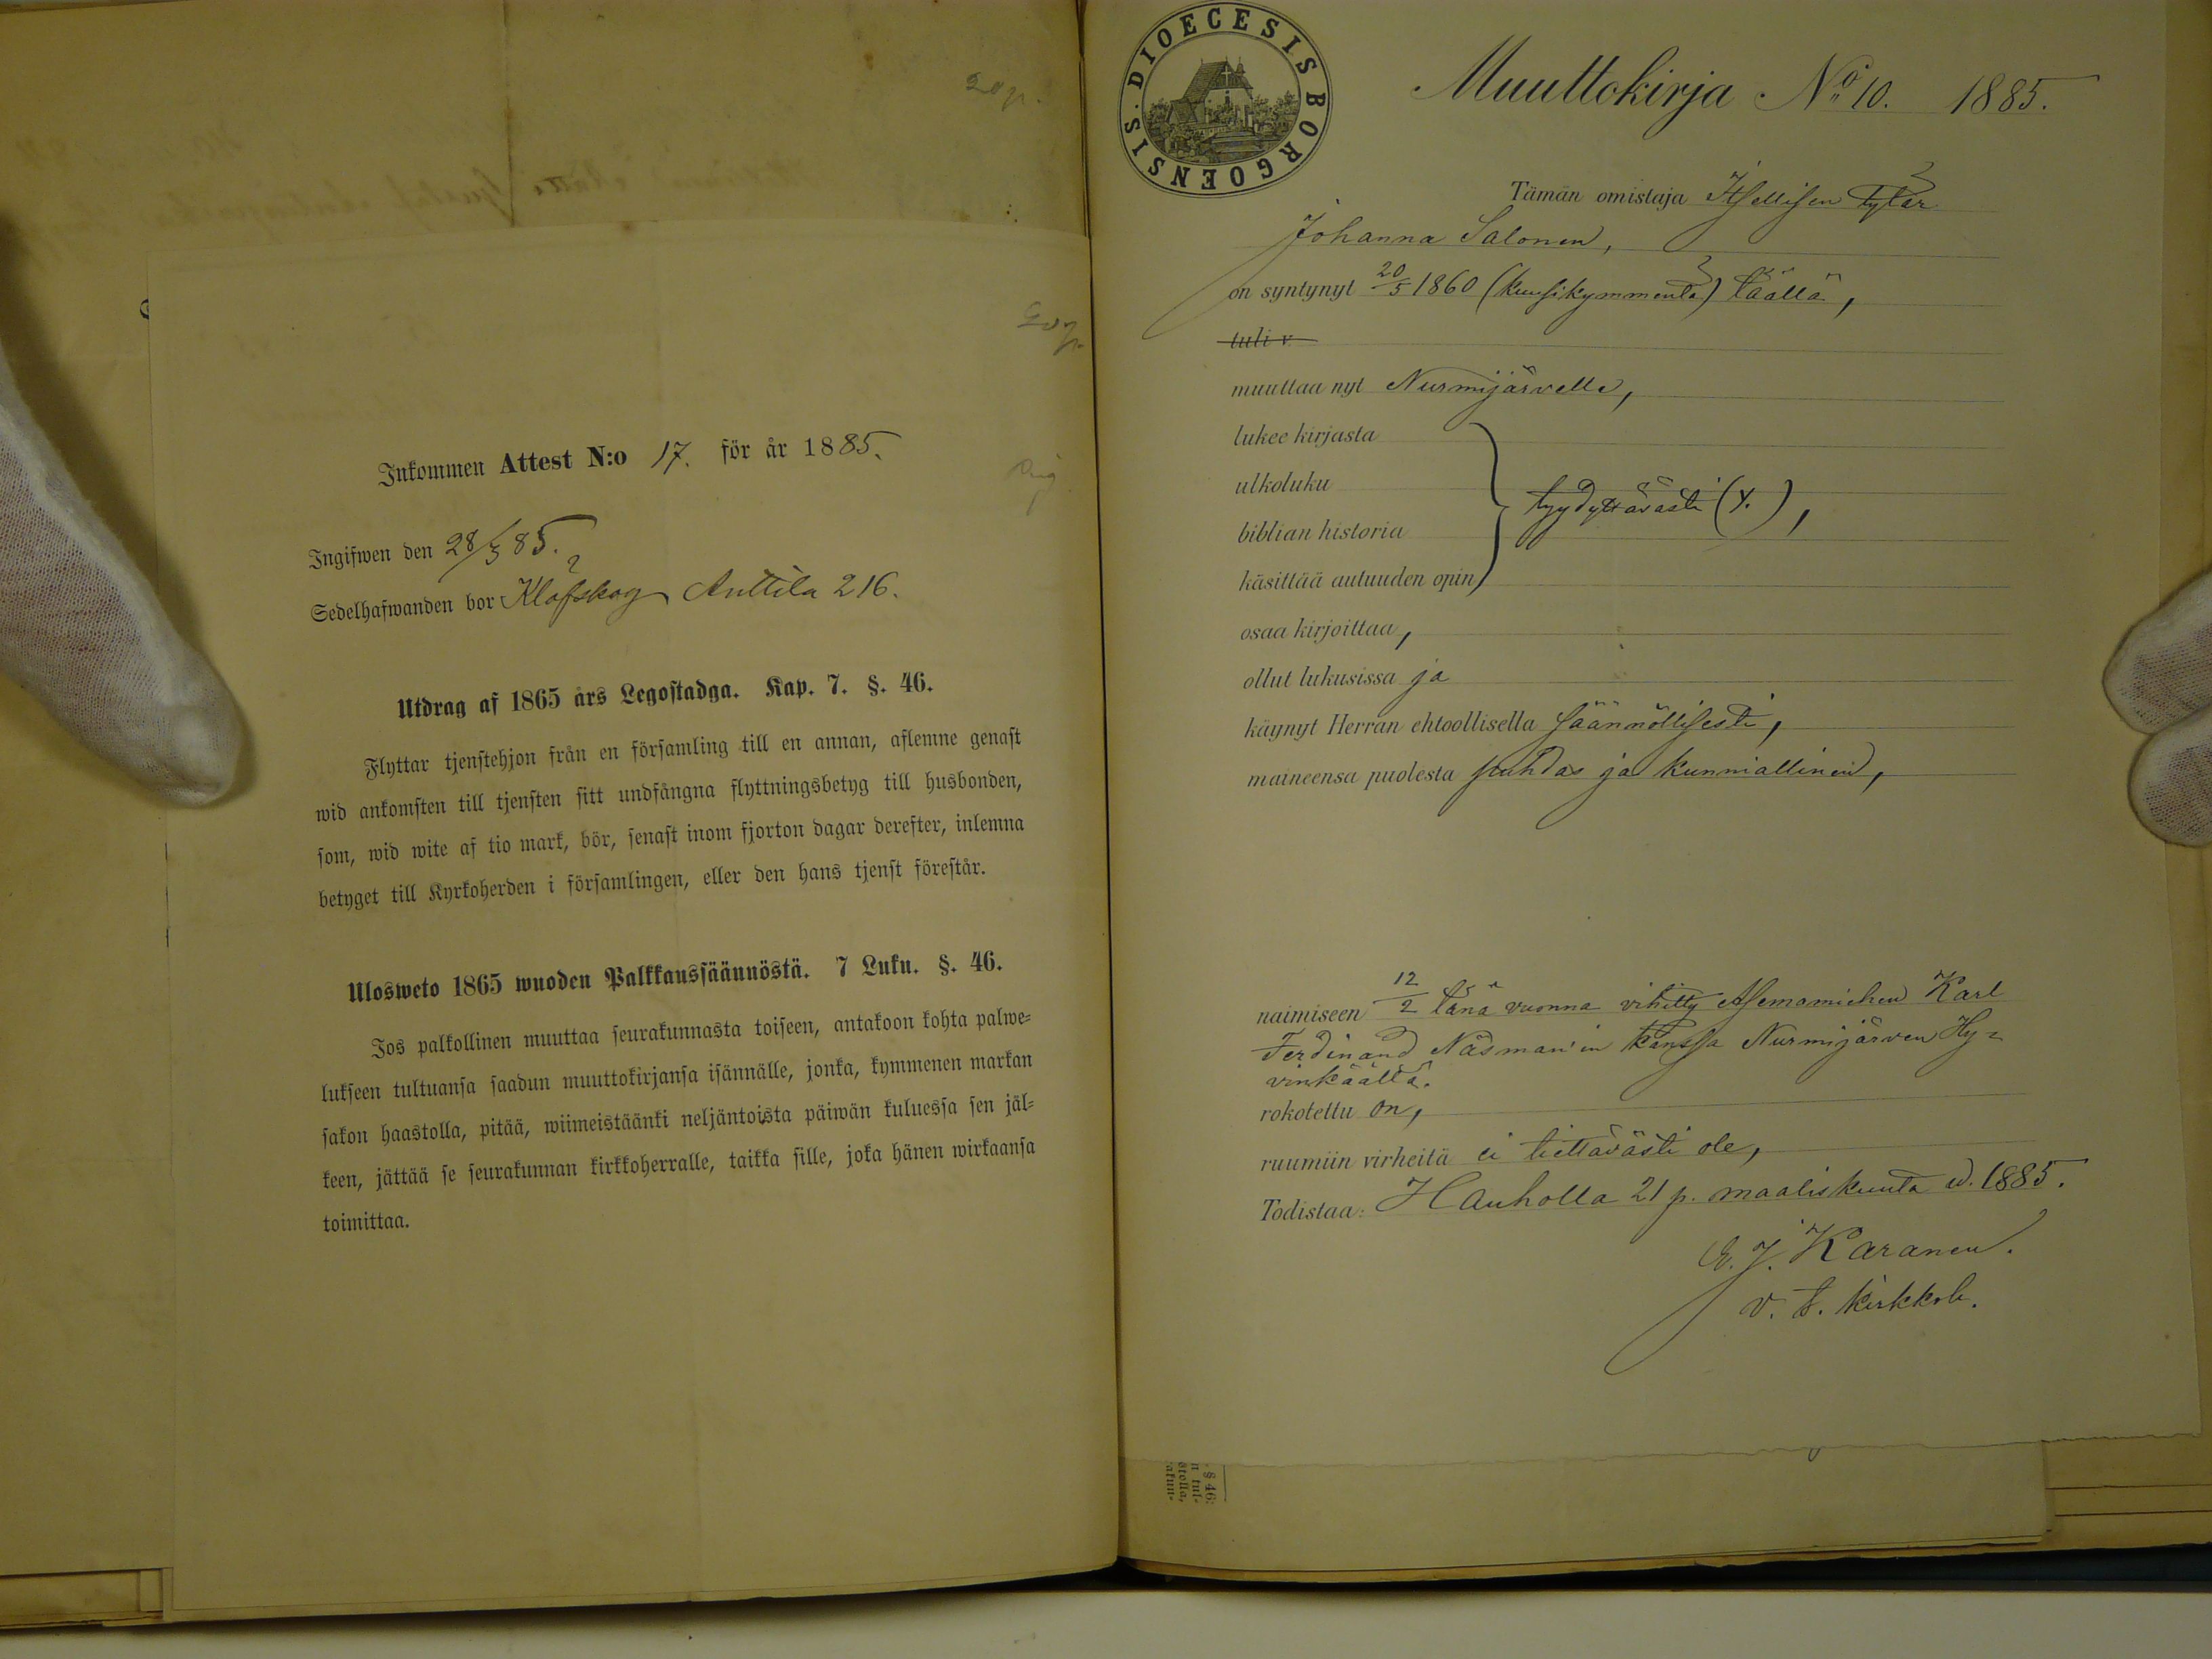 Inkommen Attest N:o 17. för år 1885.
Ingifwen den 28/3 85.
Sedelhafwanden bor Klöfskog Anttila 216.
Utdrag af 1865 års Legostadga. Kap. 7. §. 46.
Flyttar tjenstehjon från en församling till en annan, aflemne genast
wid ankomsten till tjensten sitt undfångna flyttningsbetyg till husbonden,
som, wid wite af tio mark, bör, senast inom fjorton dagar derefter, inlemna
betyget till Kyrkoherden i församlingen, eller den hans tjenst förestår.
Ulosweto 1865 wuoden Palkkaussäännöstä. 7 Luku. §. 46.
Jos palkollinen muuttaa seurakunnasta toiseen, antakoon kohta palwe-
lukseen tultuansa saadun muuttokirjansa isännälle, jonka, kymmenen markan
sakon haastolla, pitää, wiimeistäänki neljäntoista päiwän kuluessa sen jäl-
keen, jättää se seurakunnan kirkkoherralle, taikka sille, joka hänen wirkaansa
toimittaa.
DIOECESIS BORGOENSIS.
Muuttokirja No 10. 1885.
Tämän omistaja Itsellisen tytär
Johanna Salonen,
on syntynyt 20/5 1860 (kuusikymmentä) täällä,
tuli v.
muuttaa nyt Nurmijärvelle,
lukee kirjasta
ulkoluku
tyydyttävästi (y.),
biblian historia
käsittää autuuden opin
osaa kirjoittaa,
ollut lukusissa ja
käynyt Herran ehtoollisella säännöllisesti,
maineensa puolesta puhdas ja kunniallinen,
naimiseen 12/2 tänä vuonna vihitty Asemamiehen Karl
Ferdinand Näsman'in kanssa Nurmijärven Hy=
vinkäältä.
rokotettu on,
ruumiin virheitä ei tiettävästi ole,
Todistaa: Hauholla 21 p. maaliskuuta v. 1885.
E. J. Karanen.
v. t. kirkkoh.
§ 46: